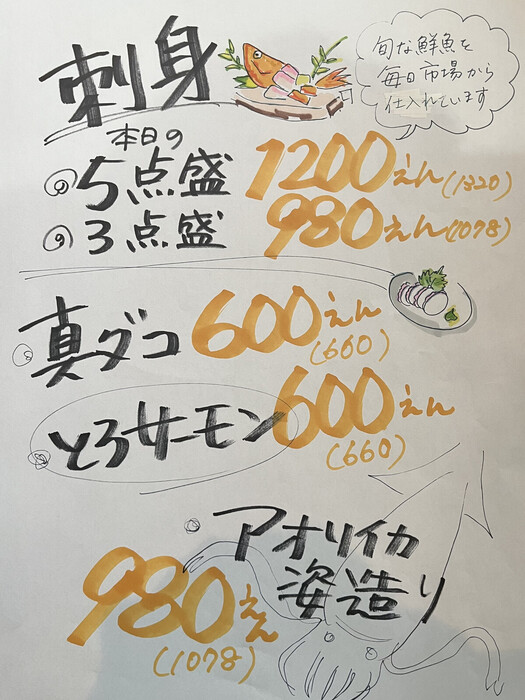 刺身
旬な鮮魚を
毎日市場から
仕入れています
本日の
5点盛 1200えん(1320)
3点盛 980えん(1078)
真ダコ 600えん
(660)
とろサーモン 600えん
(660)
アオリイカ
姿造り
980えん
(1078)